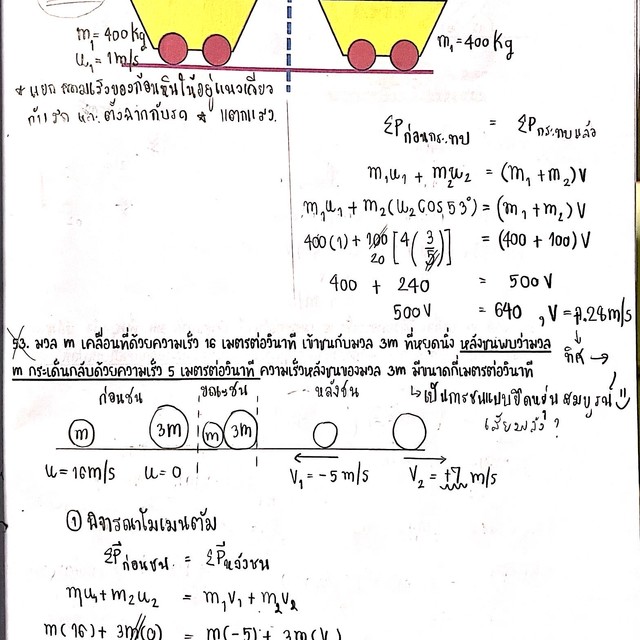 m₁ = 400 kg
u₁ = 1 m/s
m₁ = 400 kg
* แยก ของก้อนหินให้อยู่แนวเดียว
ตั้งฉากกับรถ * แตกแรง.
ΣPก่อนกระทบ = ΣPกระทบแล้ว
m₁u₁ + m₂u₂ = (m₁ + m₂)V
m₁u₁ + m₂(u₂cos 53°) = (m₁ + m₂)V
400(1) + 100[4(3/5)] = (400 + 100)V
20
400 + 240 = 500V
500V = 640 , V = 1.28 m/s
ทิศ →
53. มวล m เคลื่อนที่ด้วยความเร็ว 16 เมตรต่อวินาที เข้าชนกับมวล 3m ที่หยุดนิ่ง หลังชนพบว่ามวล
m กระเด็นกลับด้วยความเร็ว 5 เมตรต่อวินาที ความเร็วหลังชนของมวล 3m มีขนาดกี่เมตรต่อวินาที
ก่อนชน ขณะชน หลังชน
↳ เป็นการชนแบบยืดหยุ่นสมบูรณ์
m 3m m 3m
u = 16m/s u = 0 V₁ = -5 m/s V₂ = +7 m/s
① พิจารณาโมเมนตัม
ΣP̄ก่อนชน = ΣP̄หลังชน
mu₁ + m₂u₂ = m₁v₁ + m₂v₂
m(16) + 3m(0) = m(-5) + 3m(V₂)